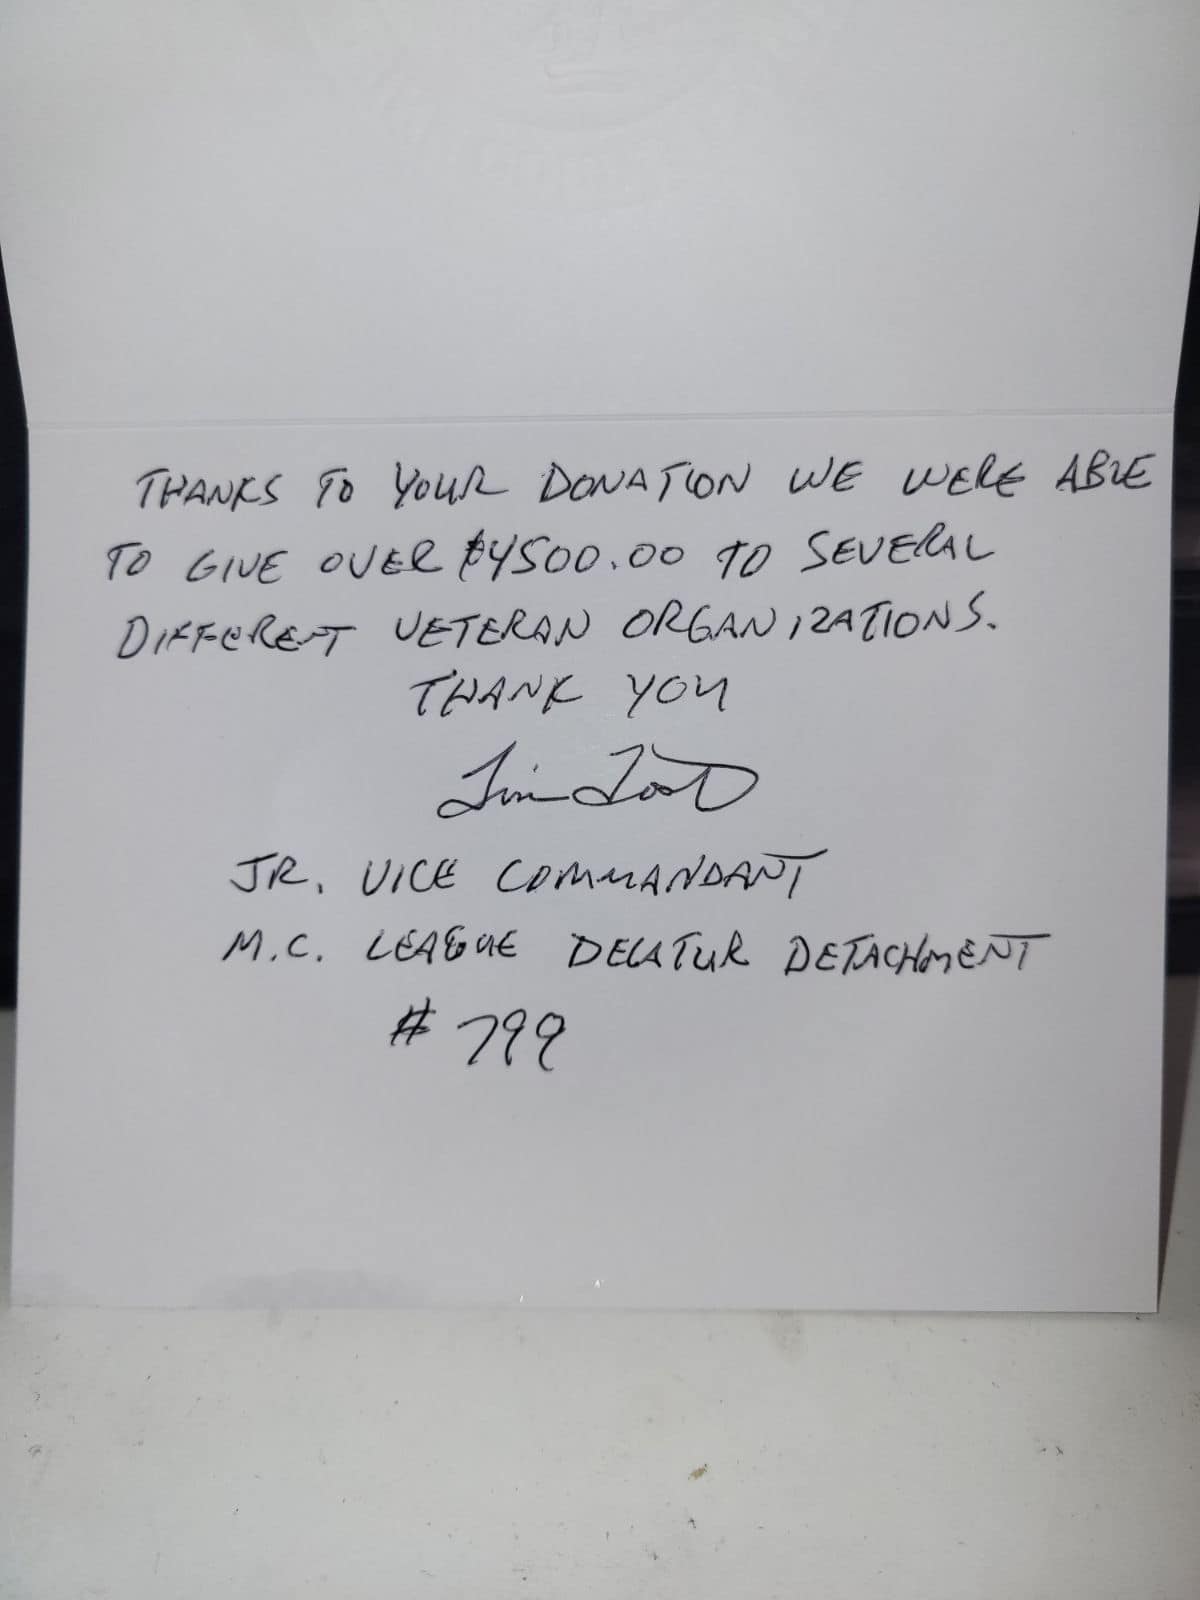 THANKS TO YOUR DONATION WE WERE ABLE
TO GIVE OVER $4500.00 TO SEVERAL
DIFFERENT VETERAN ORGANIZATIONS.
THANK YOU
JR. VICE COMMANDANT
M.C. LEAGUE DECATUR DETACHMENT
# 799